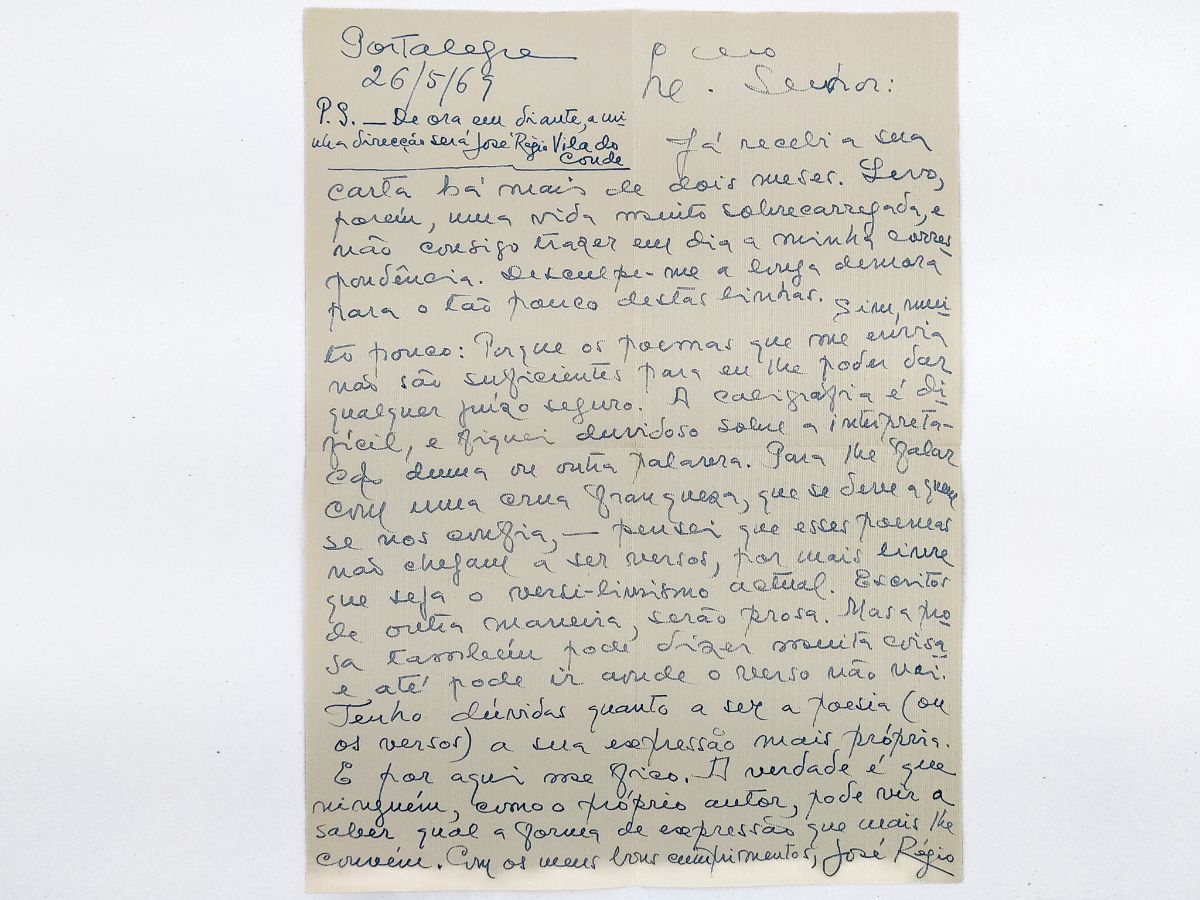 Portalegre
26/5/69
P.S. — De ora em diante, a mi-
nha direcção será José Régio Vila do
Conde
Senhor:
Já recebi a sua
carta há mais de dois meses. Levo,
porém, uma vida muito sobrecarregada, e
não consigo trazer em dia a minha corres
pondência. Desculpe-me a longa demora
para o tão pouco destas linhas. Sim, mui-
to pouco: Porque os poemas que me envia
não são suficientes para eu lhe poder dar
qualquer juízo seguro. A caligrafia é di-
fícil, e fiquei duvidoso sobre a interpreta-
ção duma ou outra palavra. Para lhe falar
com uma crua franqueza, que se deve a quem
se nos confia, — pensei que esses poemas
não chegam a ser versos, por mais livre
que seja o versi-livrismo actual. Escritos
de outra maneira, serão prosa. Mas a pro-
sa também pode dizer muita coisa
e até pode ir aonde o verso não vai.
Tenho dúvidas quanto a ser a poesia (ou
os versos) a sua expressão mais própria.
E por aqui me fico. A verdade é que
ninguém, como o próprio autor, pode vir a
saber qual a forma de expressão que mais lhe
convém. Com os meus bons cumprimentos, José Régio